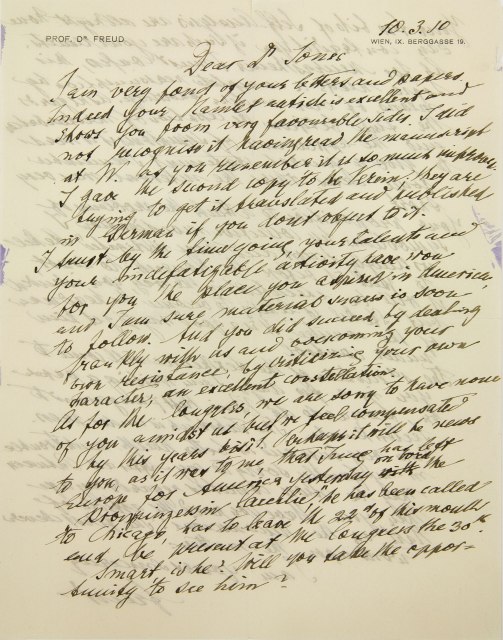 PROF. Dr FREUD
10.3.10
WIEN, IX. BERGGASSE 19.
Dear Dr Jones
I am very fond of your letters and papers
Indeed your Hamlet article is excellent and
shows you from very favourable sides. I did
not recognise it having read the manuscript
at W. as you remember it is so much improved.
I gave the second copy to the Verein, they are
trying to get it translated and published
in German if you don't object to it.
I trust by the time going, your talents and
your indefatigable activity have won
for you the place you aspired in America,
and I am sure material is soon
to follow. And you did succeed by dealing
frankly with us and overcoming your
own resistance, by criticising your own
caracter, an excellent constellation.
As for the Congress, we are sorry to have none
of you amidst us but we feel compensated
by this years visit. Perhaps it will be news
to you, as it was to me, that Jung has left
Europe for America yesterday on bord the
Kronprinzessin Caecilie, he has been called
to Chicago, has to leave the 22d of this month
and be present at the Congress the 30th.
Smart is he? Will you take the oppor-
tunity to see him?